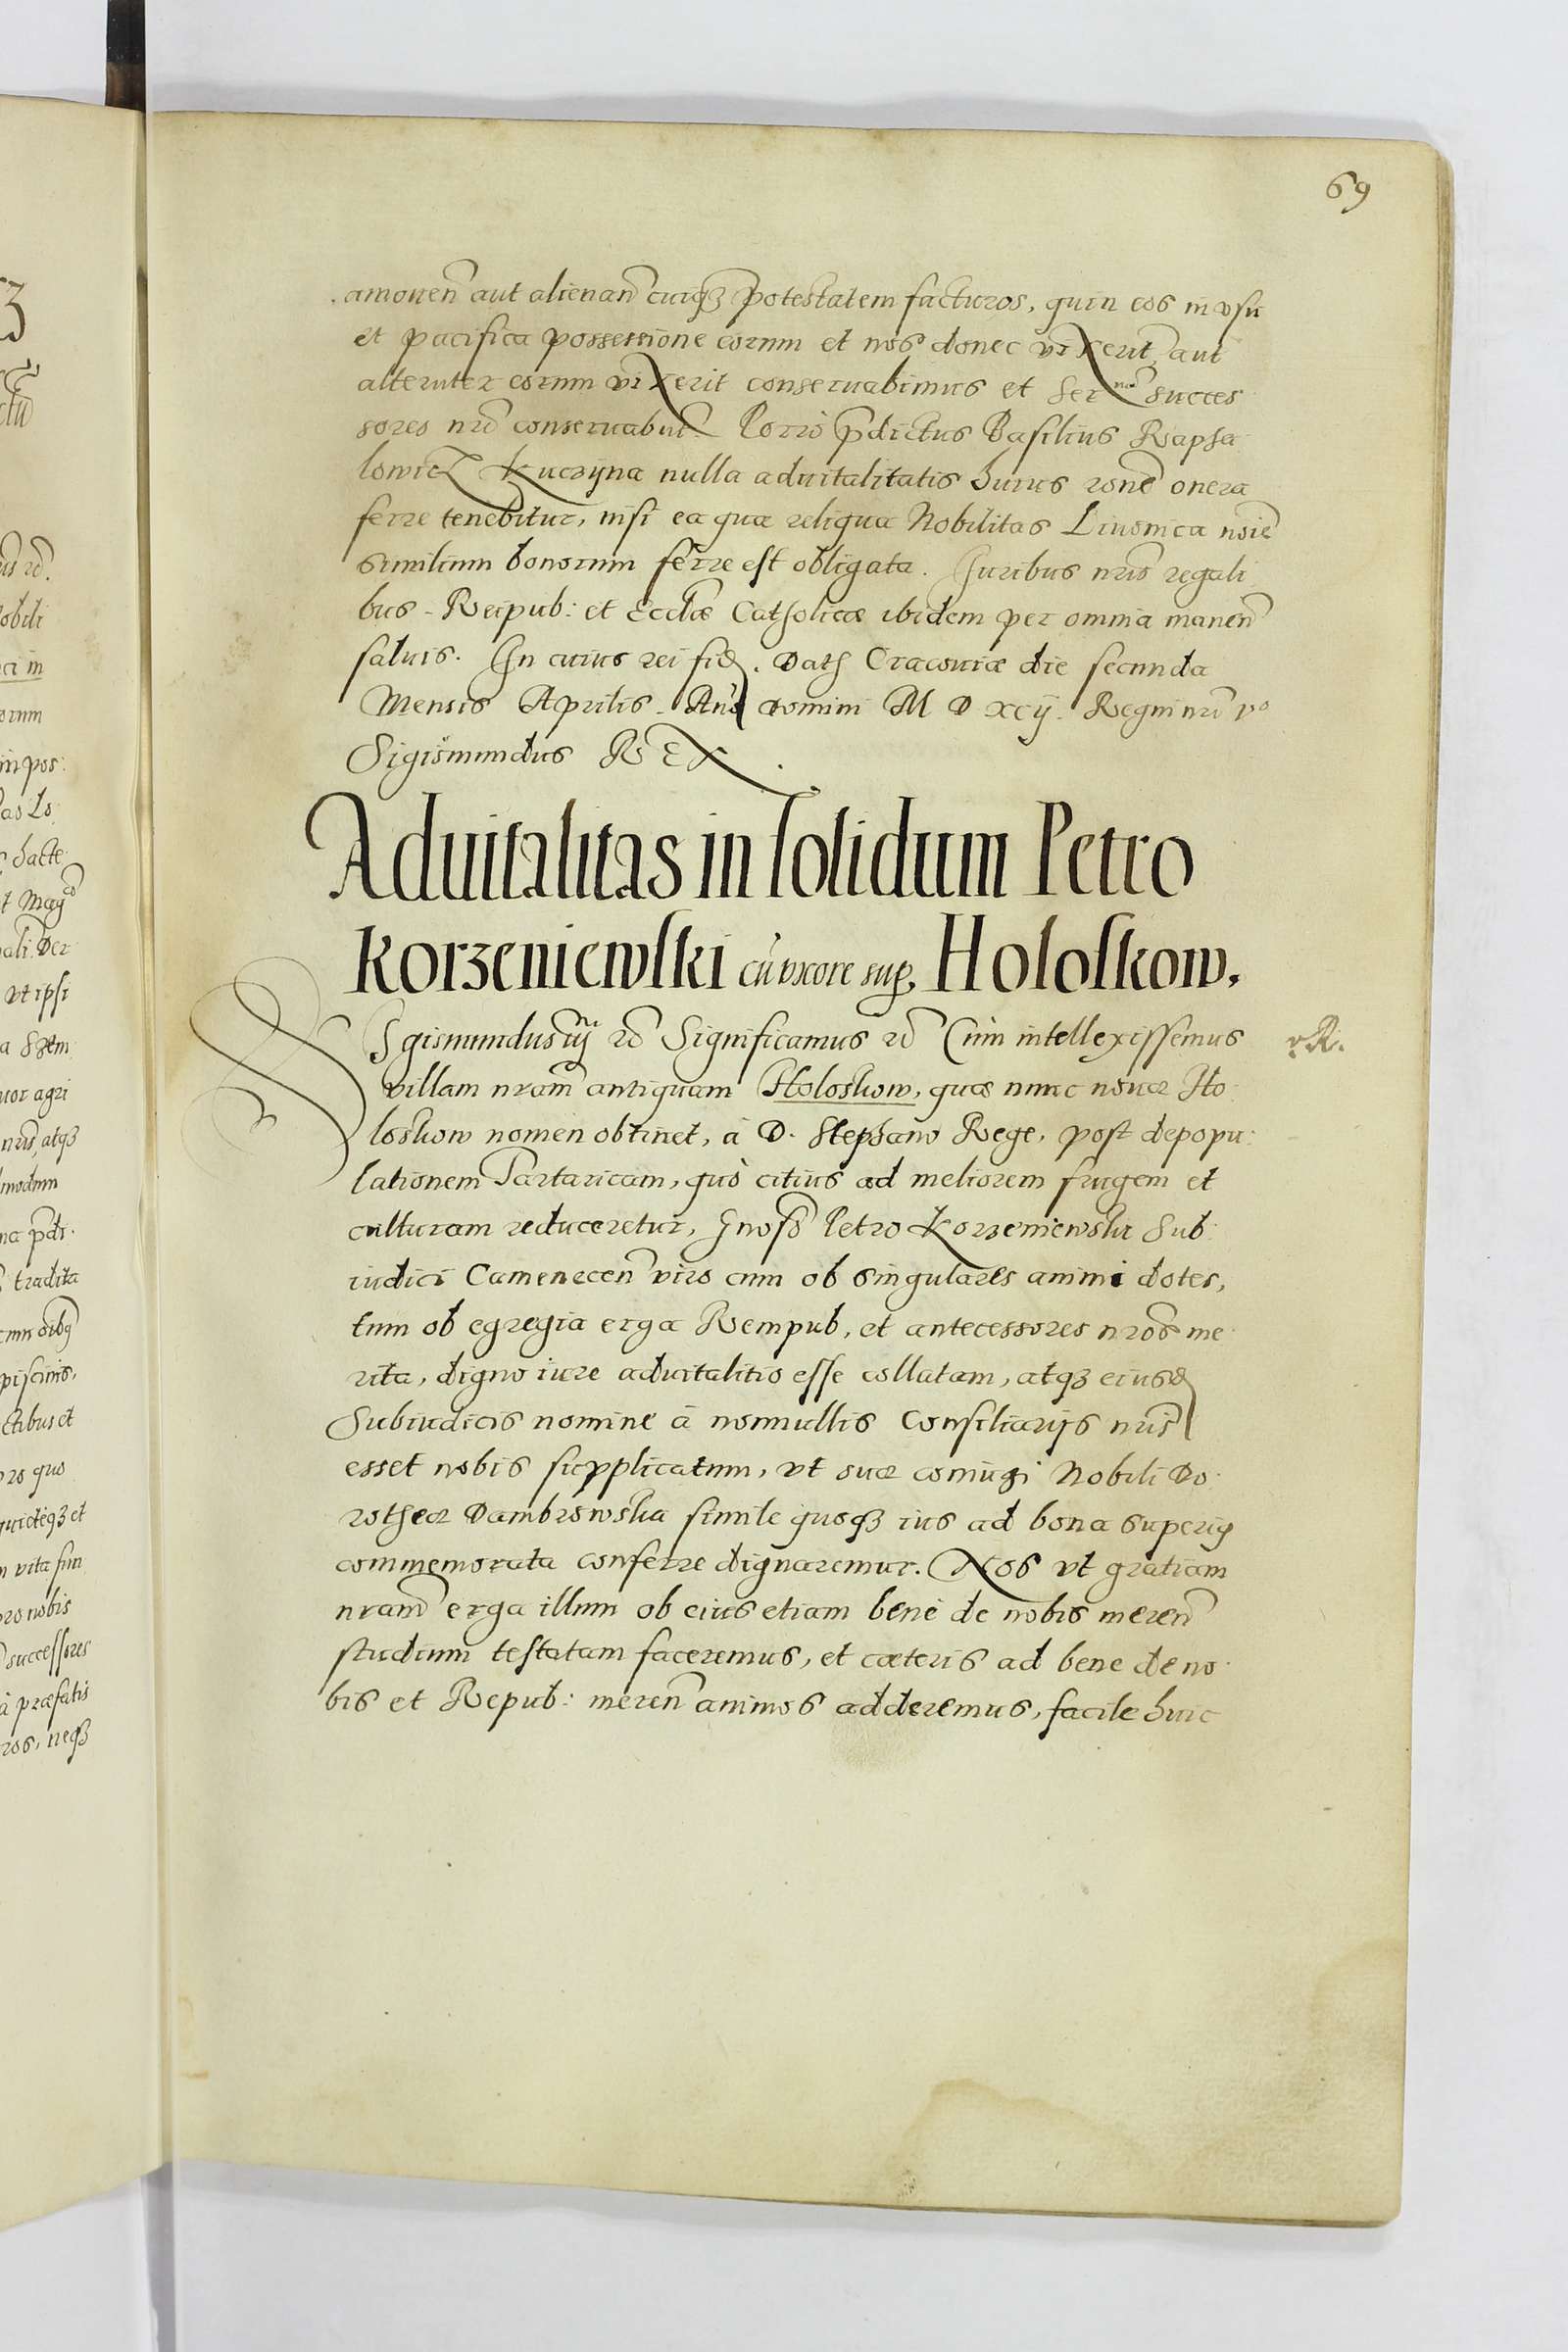 69
amoueñ aut alienañ cuiqȝ potestatem facturos, quin eos in vsu
et pacifica possessione eorum et nos donec vixerit aut
alteruter eorum vixerit conseruabimus et Ser^mi succes
sores nrĩ conseruabuñt. Porrò pdictus Basilius Rapha
lowicz Kuczyna nulla aduitalitatis huius ronẽ onera
ferre tenebitur, nisi ea quæ reliqua Nobilitas Liuonica noiẽ
similium bonorum ferre est obligata. Iuribus nris regali
bus Reipub: et Ecclæ Catholicæ ibidem per omnia maneñ
saluis. In cuius rei fid. Dath Cracouiæ die secunda
Mensis Aprilis. Año domini M D xcij. Regni nrĩ v^o
Sigismundus REX.
Aduitalitas in solidum Petro
Korzeniewski cũ vxore sup. Holoskow.
Sgismundus iij rc̃ Significamus rc̃ Cùm intellexissemus
villam nram̃ antiquam Holoskow, quæ nunc nouæ Ho
loskow nomen obtinet, à D. Stephano Rege, post depopu:
lationem Tartaricam, quò citius ad meliorem frugem et
culturam reduceretur, Gnoso Petro Korzeniewski Sub:
iudici Cameneceñ viro cum ob singulares animi dotes,
tum ob egregia erga Rempub, et antecessores nros me
rita, digno iure aduitalitio esse collatam, atqȝ eiusd
Subiudicis nomine à nonnullis Consiliarijs nris
esset nobis supplicatum, vt suæ coniugi Nobili Do
rotheæ Dambrowska simile quoqȝ ius ad bona superiꝰ
commemorata conferre dignaremur. Nos vt gratiam
nram̃ erga illum ob eius etiam bene de nobis mereñ
studium testatam faceremus, et cæteris ad bene de no
bis et Repub: mereñ animos adderemus, facile huic